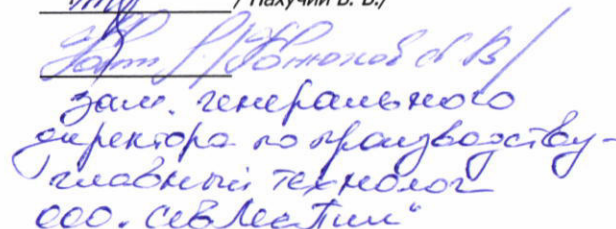 / Пахучий В. В./
зам. генерального
директора по производству-
главный технолог
ООО „СевЛесПил"